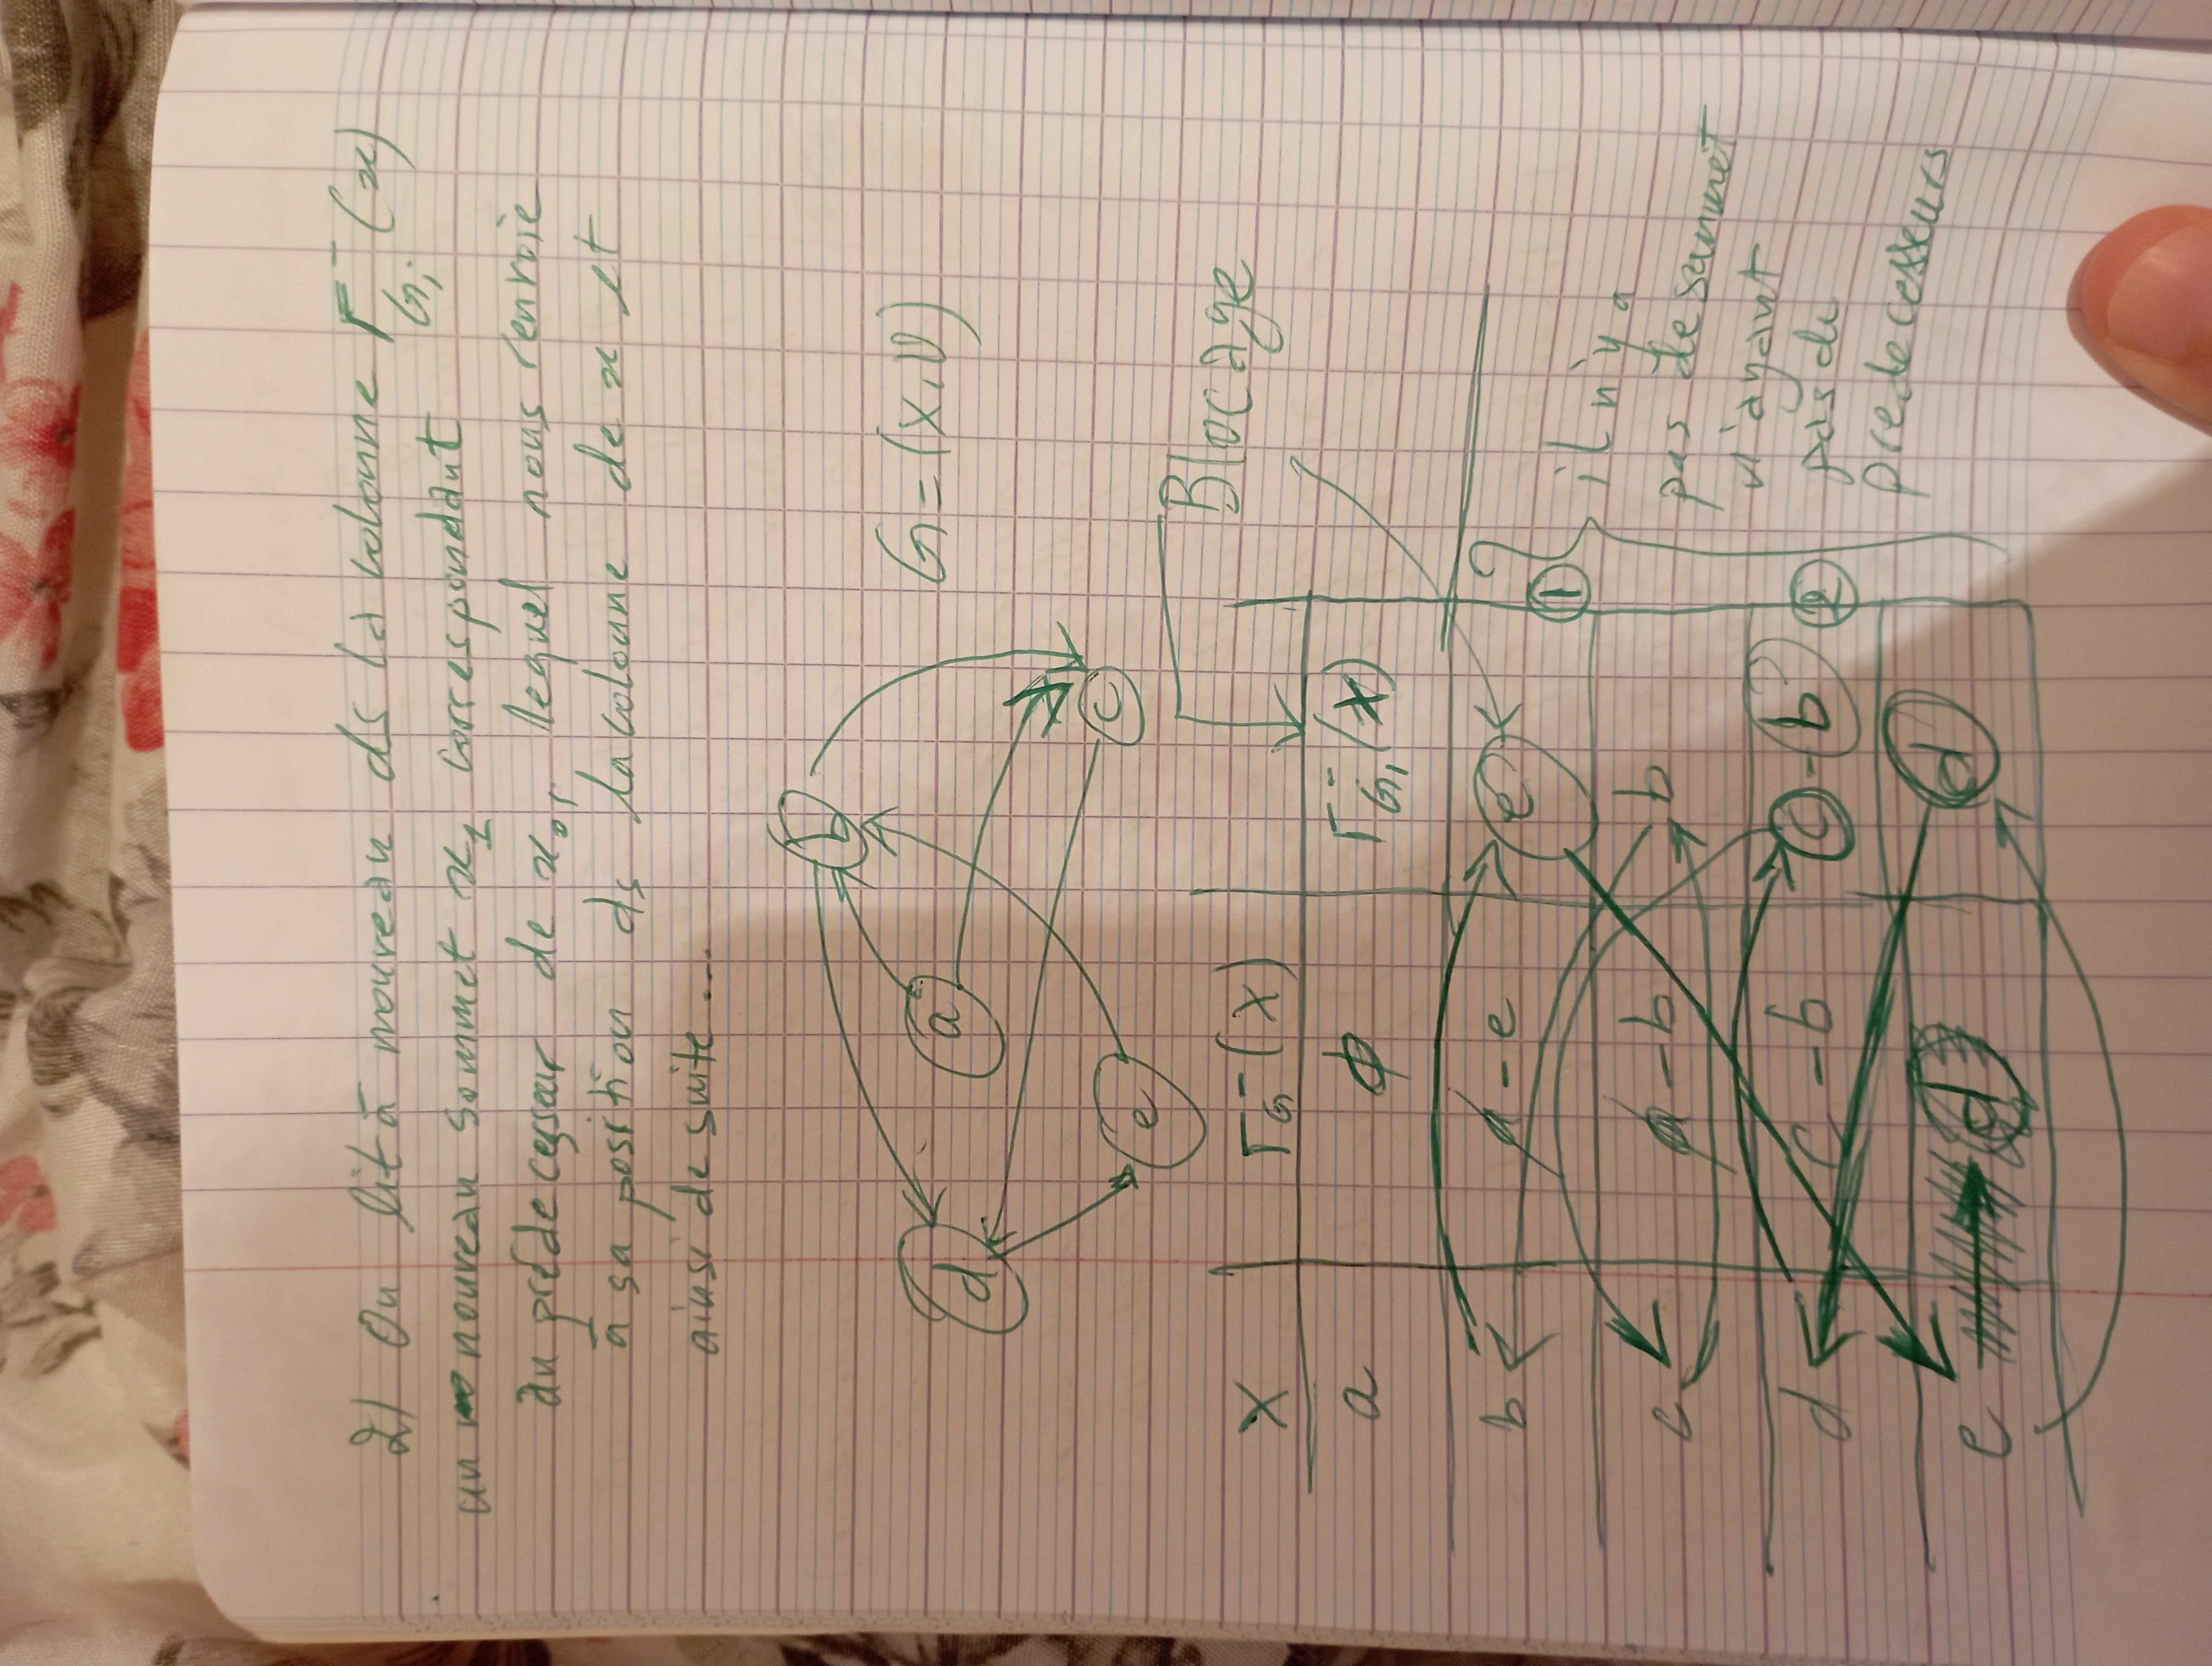 2) On lit à nouveau ds la colonne Γ⁻(x)
un nouveau sommet x₁ correspondant Gᵢ
au prédecesseur de x₀, lequel nous renvoie
à sa position ds la colonne de x et
ainsi de suite ...
d
a
b
e
c
G = (X, U)
Blocage
X | Γ⁻G (X)
a | ∅ | Γ⁻G₁ (X)
b | a - e | e
c | a - b | b
d | c - b | c - b
e | d | d
① ②
il n'y a
pas de sommet
n'ayant
pas de
predecesseurs